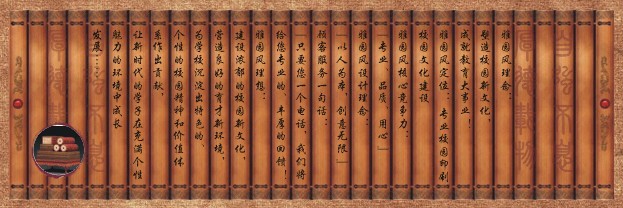 雅园风理念：
塑造校园新文化
成就教育大事业！
雅园风定位：专业校园印刷
校园文化建设
雅园风核心竞争力：
专业 品质 用心
雅园风设计理念：
以人为本 创意无限
顾客服务一句话：
只要您一个电话，我们将
给您专业的、丰度的回惜！
雅园风理想：
建设浓郁的校园新文化，
营造良好的育才新环境，
为学校沉淀出特色的、
个性的校园精神和价值体
系作出贡献，
让新时代的学子在充满个性
魅力的环境中成长
发展……
自强不息
厚德载物